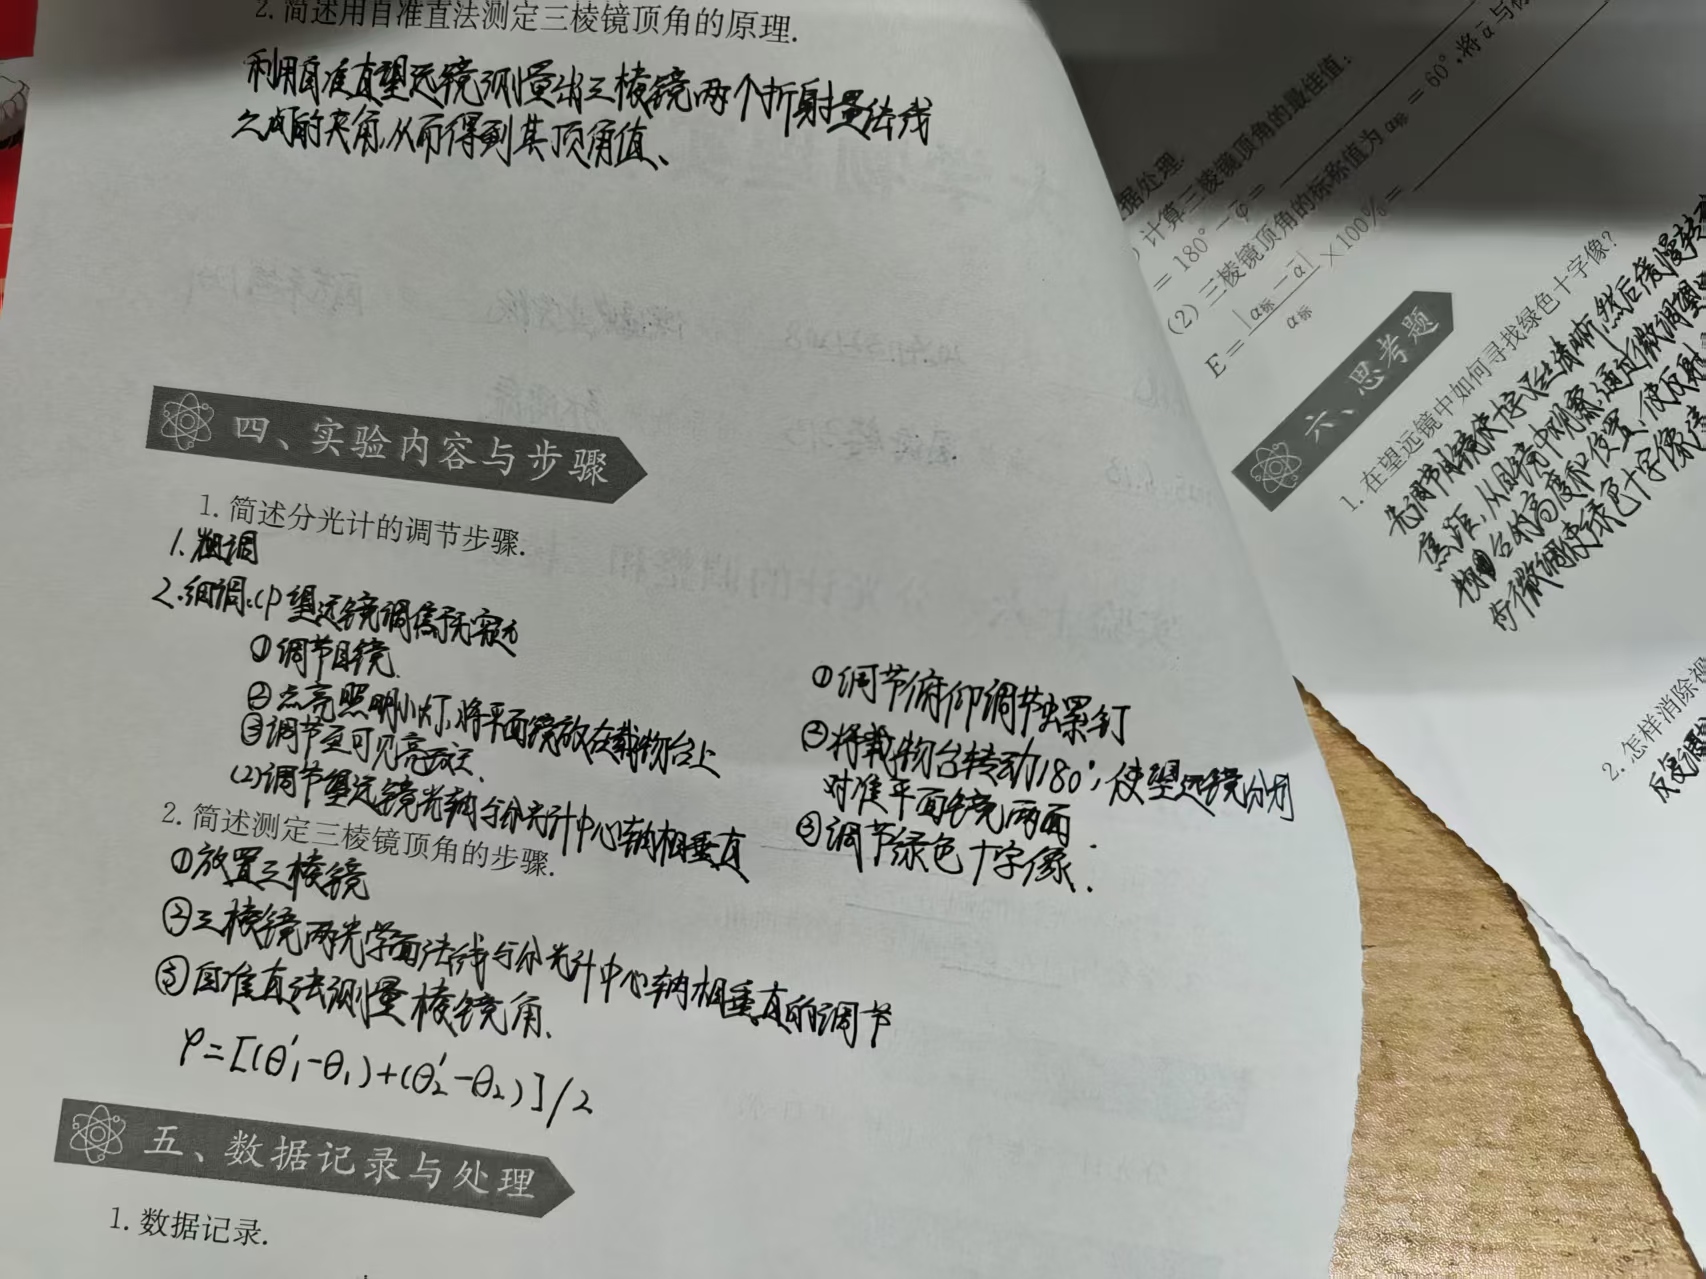 2.简述用自准直法测定三棱镜顶角的原理.
利用自准直望远镜测量出三棱镜两个折射面法线
之成的夹角,从而得到其顶角值、
四、实验内容与步骤
1.简述分光计的调节步骤.
1.粗调
2.细调:(1)望远镜调焦于无穷远
①调节目镜
②点亮照明小灯,将平面镜放在载物台上
③调节至可见亮
(2)调节望远镜光轴与分光计中心轴相垂直
①调节俯仰调节螺钉
②将载物台转动180°,使望远镜分别
对准平面镜两面.
③调节绿色十字像.
2.简述测定三棱镜顶角的步骤.
①放置三棱镜
②三棱镜两光学面法线与分光计中心轴相垂直的调节
③自准直法测量棱镜角.
φ=[(θ₁'-θ₁)+(θ₂'-θ₂)]/2
五、数据记录与处理
1.数据记录.
据处理.
计算三棱镜顶角的最佳值:
=180°-φ̄=
(2)三棱镜顶角的标称值为α标=60°,将ᾱ与
E=|α标-ᾱ|/α标×100%=
六、思考题
1.在望远镜中如何寻找绿色十字像?
先调节目镜使十字丝清晰,然后缓慢转
焦距,从目镜中观察,通过微调望
物台的高度和位置,使反射
行微调使绿色十字像清
2.怎样消除视
反复调